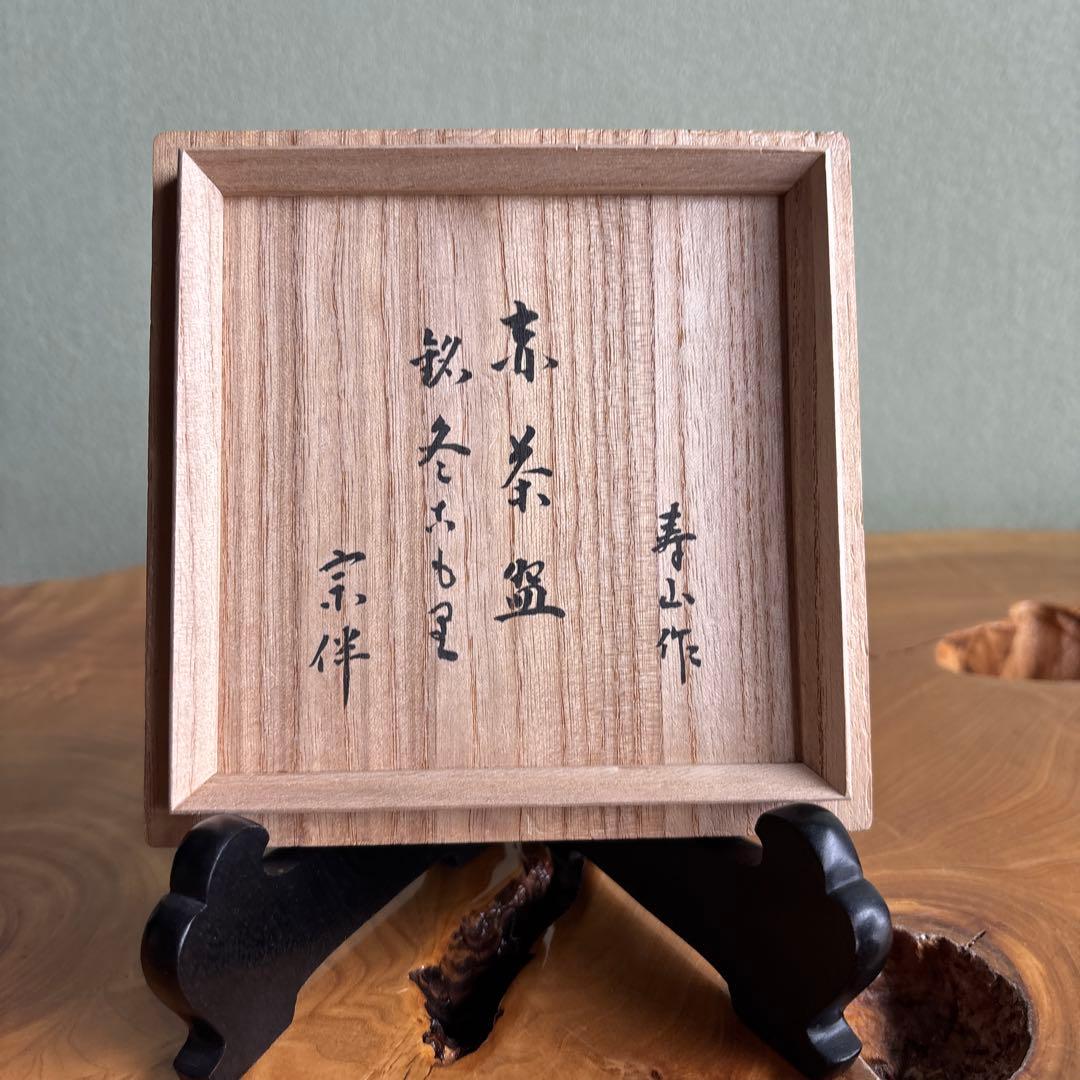 寿山作
赤茶盌
銘 冬こも里
宗伴